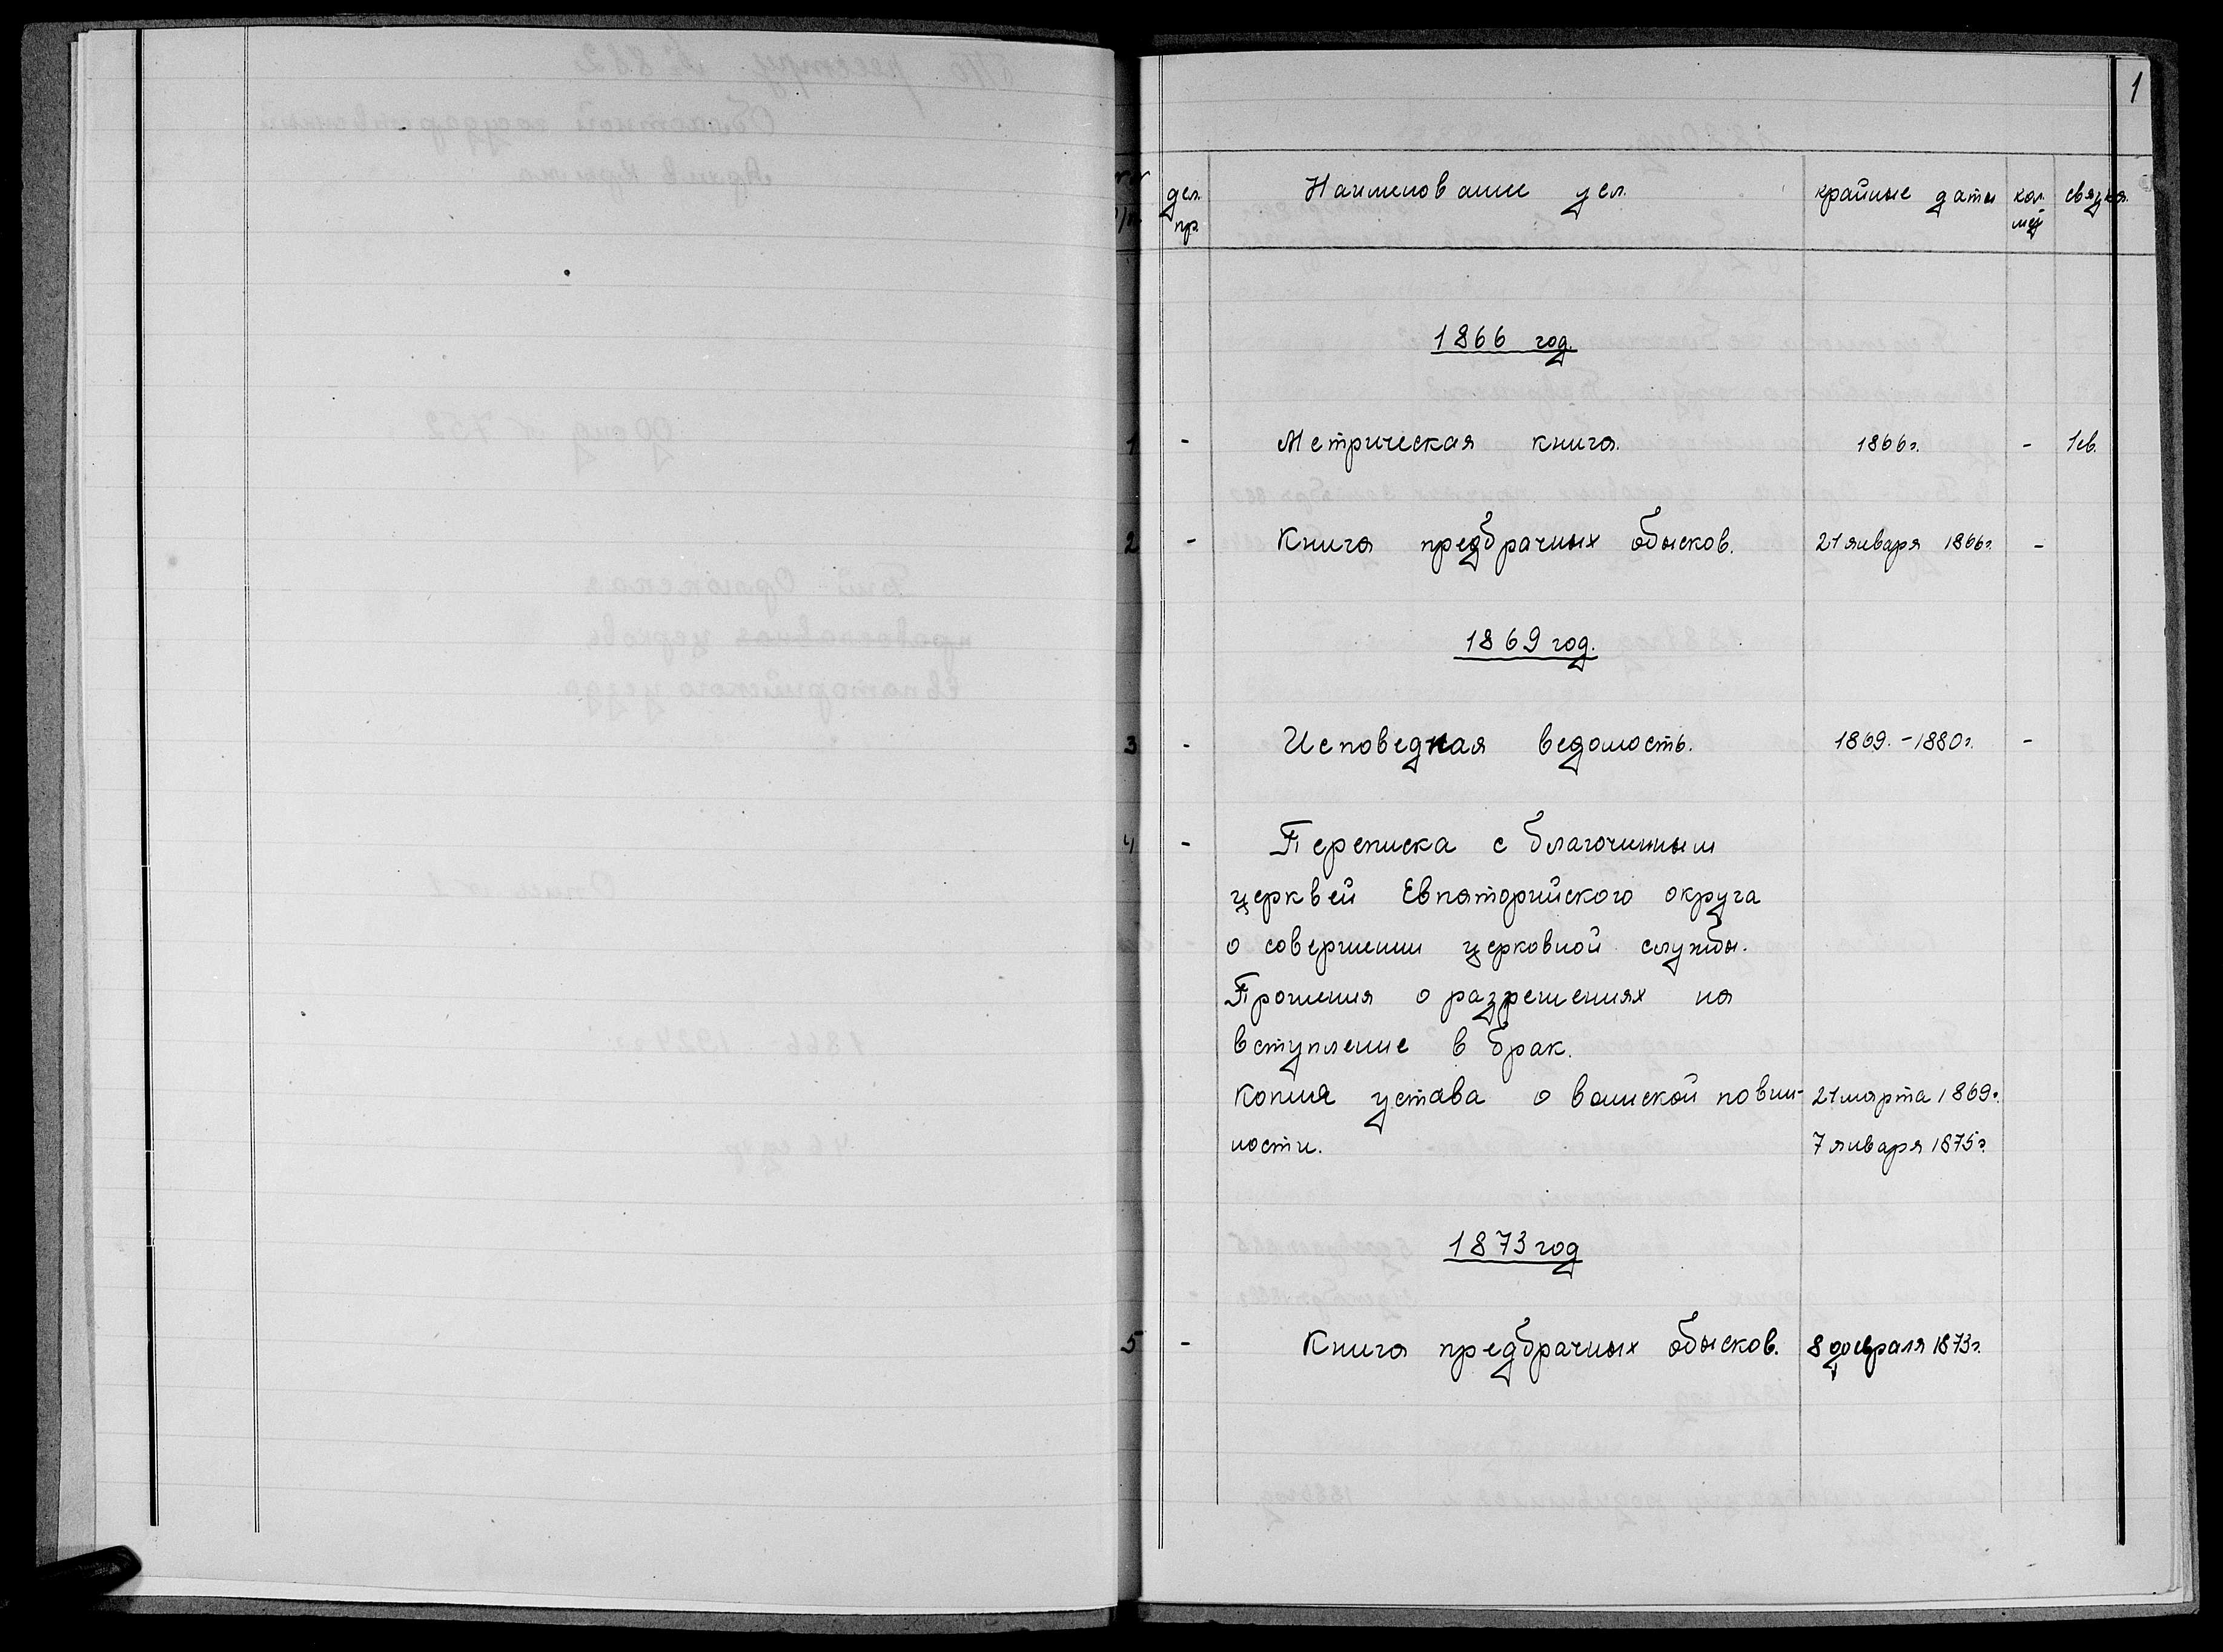 1
дел. Наименование дел. крайние даты кол. связка.
пр. мед
1866 год.
1 - Метрическая книга. 1866г. - 1св.
2 - Книга предбрачных обысков. 21 января 1866г. -
1869 год.
3 - Исповедная ведомость. 1869.-1880г. -
4 - Переписка с благочинным
церквей Евпаторийского округа
о совершении церковной службы.
Прошения о разрешениях на
вступление в брак.
Копия устава о воинской повин- 21 марта 1869г.
ности. 7 января 1875г.
1873 год
5 - Книга предбрачных обысков. 8 февраля 1873г.